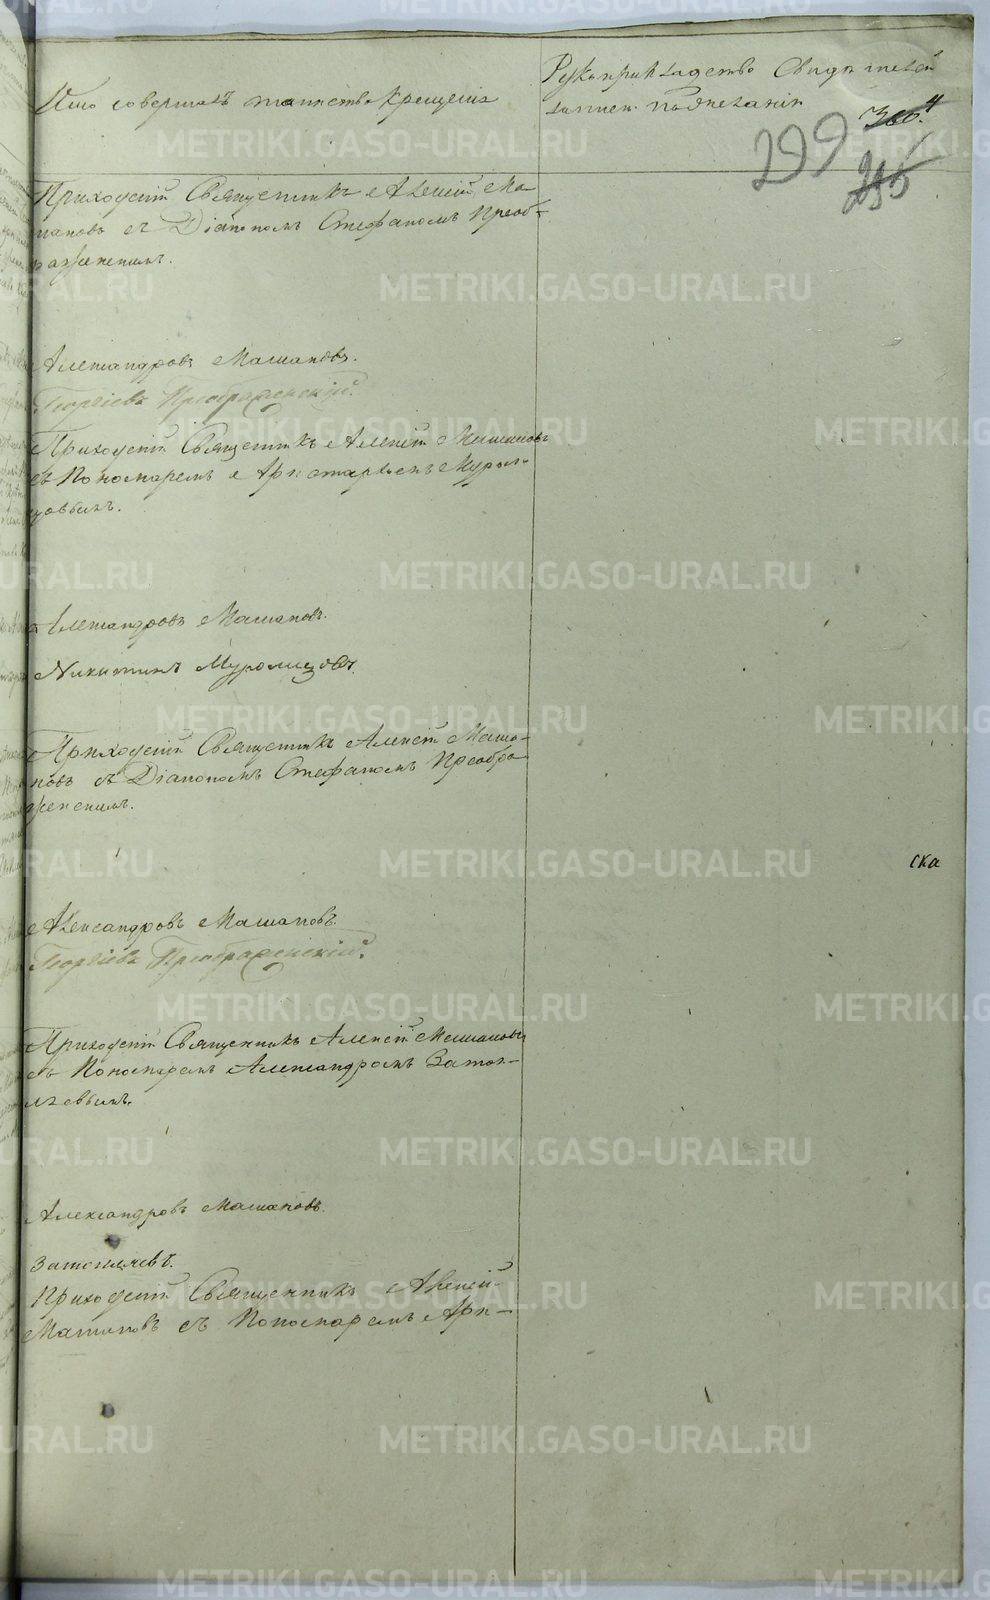 Кто совершалъ таинство крещенія
Рукоприкладство Свидѣтелей
записи по желанію
299
285
Приходскій Священникъ Алексій Ма-
шановъ съ Діакономъ Стефаномъ Преоб-
раженскимъ.
Александровъ Машановъ.
Георгіевъ Преображенскій.
Приходскій Священникъ Алексій Машановъ
съ Пономаремъ Аристархомъ Муром-
цовымъ.
Александровъ Машановъ.
Никитинъ Муромцовъ.
Приходскій Священникъ Алексій Маша-
новъ съ Діакономъ Стефаномъ Преобра-
женскимъ.
Александровъ Машановъ.
Георгіевъ Преображенскій.
Приходскій Священникъ Алексій Машановъ
съ Пономаремъ Александромъ Затоп-
ляевымъ.
Александровъ Машановъ.
Затопляевъ.
Приходскій Священникъ Алексій
Машановъ съ Пономаремъ Ари-
ска
METRIKI.GASO-URAL.RU